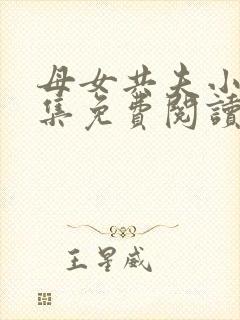 母女共夫小
集免費閱讀
王星威